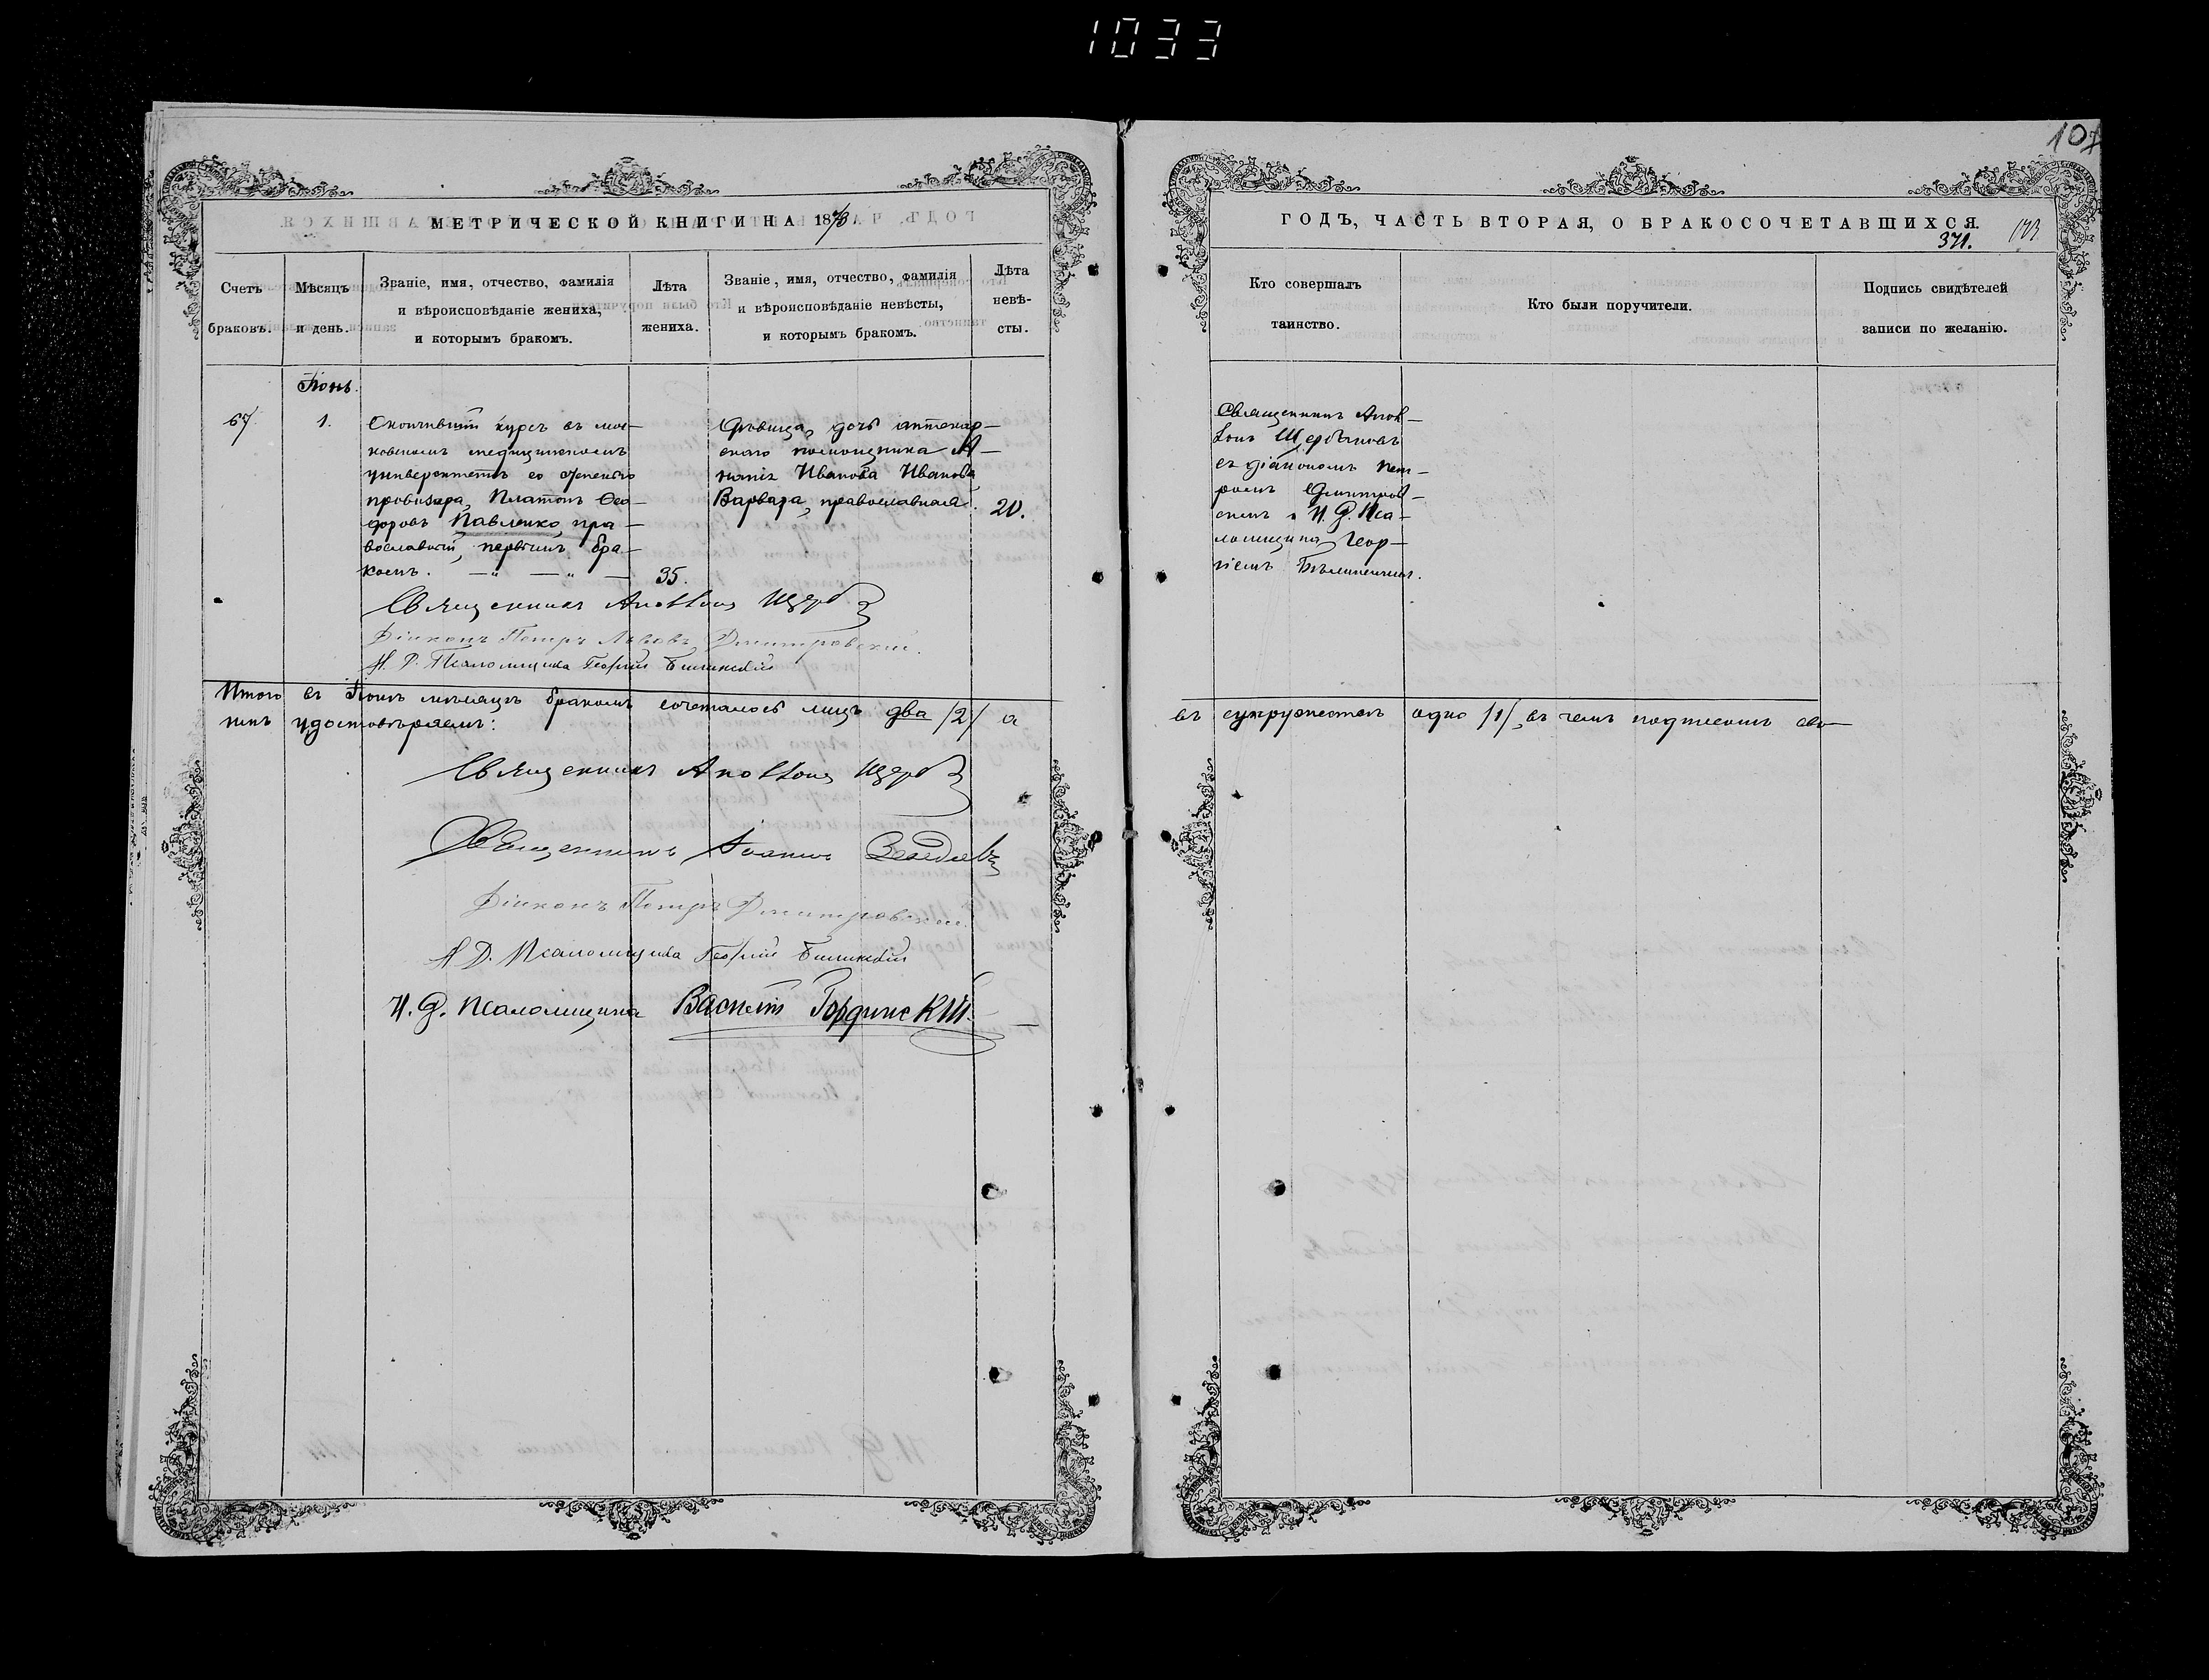 1033
107
МЕТРИЧЕСКОЙ КНИГИ НА 1873
Счетъ браковъ.
Мѣсяцъ и день.
Званіе, имя, отчество, фамилія
и вѣроисповѣданіе жениха,
и которымъ бракомъ.
Лѣта жениха.
Званіе, имя, отчество, фамилія
и вѣроисповѣданіе невѣсты,
и которымъ бракомъ.
Лѣта невѣ-
сты.
Іюнь.
67.
1.
Окончившій курсъ въ мос-
ковскомъ медицинскомъ
университетѣ со степенью
провизора, Платонъ Ѳео-
доровъ Павленко, пра-
вославный, первымъ бра-
комъ.
35.
Дѣвица, дочь аптекар-
скаго помощника А-
нанія Иванова Иванова
Варвара, православная.
20.
Священникъ Аполлонъ Щерб
Діаконъ Петръ Львовъ Дмитровскій.
И. Д. Псаломщика Георгій
Итого въ Іюнѣ мѣсяцѣ бракомъ сочеталось лицъ два /2/ а
удостовѣряемъ:
Священникъ Аполлонъ Щерб
Священникъ Іоаннъ
Діаконъ Петръ Дмитровскій
И Д. Псаломщика Георгій
И. д. Псаломщика Василій Гординскій
ГОДЪ, ЧАСТЬ ВТОРАЯ, О БРАКОСОЧЕТАВШИХСЯ.
371.
173
Кто совершалъ
таинство.
Кто были поручители.
Подпись свидѣтелей
записи по желанію.
Священникъ Апол-
лонъ Щербаковъ
съ діакономъ Пет-
ромъ Дмитров-
скимъ и И. Д. Пса-
ломщика Геор-
гіемъ
въ супружествѣ одно /1/, въ чемъ подписомъ сво-